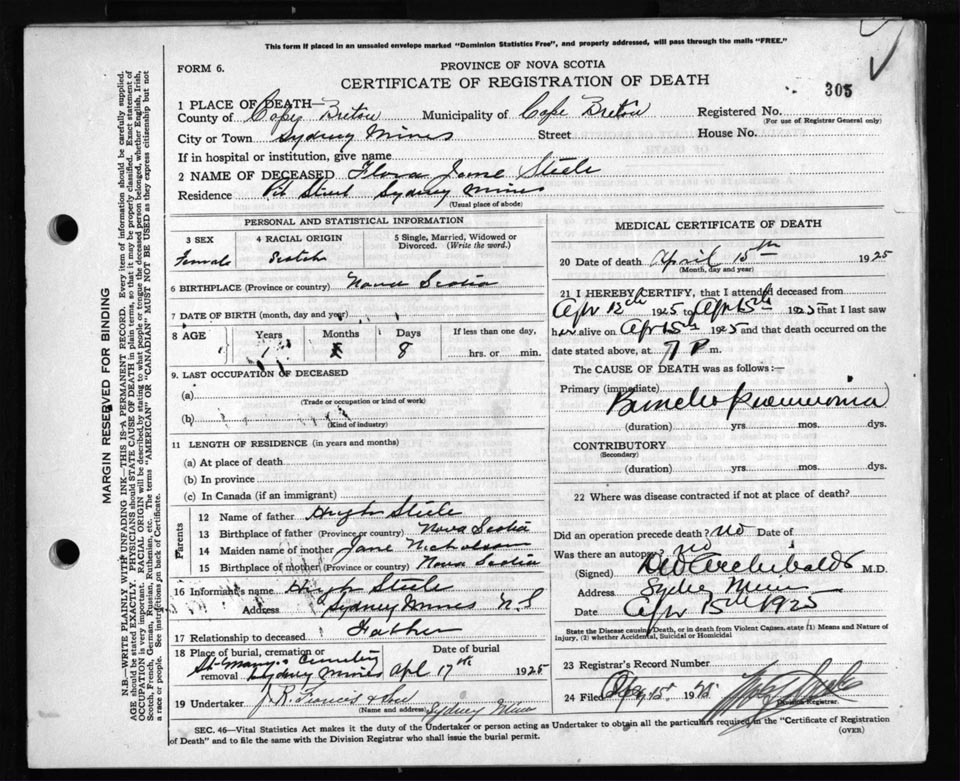 This form if placed in an unsealed envelope marked "Dominion Statistics Free", and properly addressed, will pass through the mails "FREE."
FORM 6.
PROVINCE OF NOVA SCOTIA
CERTIFICATE OF REGISTRATION OF DEATH
305
1 PLACE OF DEATH—
County of Cape Breton Municipality of Cape Breton Registered No.
(For use of Registrar General only)
City or Town Sydney Mines Street House No.
If in hospital or institution, give name
2 NAME OF DECEASED Flora Jane Steele
Residence Pit Street Sydney Mines
(Usual place of abode)
PERSONAL AND STATISTICAL INFORMATION
3 SEX 4 RACIAL ORIGIN 5 Single, Married, Widowed or Divorced. (Write the word.)
Female Scotch
6 BIRTHPLACE (Province or country) Nova Scotia
7 DATE OF BIRTH (month, day and year)
8 AGE Years Months Days If less than one day,
1 8 hrs. or min.
9. LAST OCCUPATION OF DECEASED
(a)
(Trade or occupation or kind of work)
(b)
(Kind of industry)
11 LENGTH OF RESIDENCE (in years and months)
(a) At place of death
(b) In province
(c) In Canada (if an immigrant)
Parents
12 Name of father Hugh Steele
13 Birthplace of father (Province or country) Nova Scotia
14 Maiden name of mother Jane Nicholson
15 Birthplace of mother (Province or country) Nova Scotia
16 Informant's name Hugh Steele
Address Sydney Mines N.S
17 Relationship to deceased Father
18 Place of burial, cremation or removal Date of burial
St Mary's Cemetery
Sydney Mines Apl 17th 1925
19 Undertaker J.R. Francis & Son
(Name and address) Sydney Mines
MEDICAL CERTIFICATE OF DEATH
20 Date of death April 15th 1925
(Month, day and year)
21 I HEREBY CERTIFY, that I attended deceased from
Apr 12th 1925 to Apr 15th 1925 that I last saw
her alive on Apr 15th 1925 and that death occurred on the
date stated above, at 7 P m.
The CAUSE OF DEATH was as follows:—
Primary (immediate) Broncho pneumonia
(duration) yrs. mos. dys.
CONTRIBUTORY
(Secondary)
(duration) yrs. mos. dys.
22 Where was disease contracted if not at place of death?
Did an operation precede death? No Date of
Was there an autopsy? No
(Signed) Archibald M.D.
Address Sydney Mines
Date Apr 15th 1925
State the Disease causing Death, or in death from Violent Causes, state (1) Means and Nature of Injury, (2) whether Accidental, Suicidal or Homicidal
23 Registrar's Record Number
24 Filed 15 1925
Division Registrar.
SEC. 46—Vital Statistics Act makes it the duty of the Undertaker or person acting as Undertaker to obtain all the particulars required in the "Certificate of Registration of Death" and to file the same with the Division Registrar who shall issue the burial permit.
(OVER)
MARGIN RESERVED FOR BINDING
N.B.—WRITE PLAINLY WITH UNFADING INK—THIS IS A PERMANENT RECORD. Every item of information should be carefully supplied.
AGE should be stated EXACTLY. PHYSICIANS should STATE CAUSE OF DEATH in plain terms, so that it may be properly classified. Exact statement of
OCCUPATION is very important. RACIAL ORIGIN will be described by stating to what people or tongue the deceased person belonged, whether English, Irish,
Scotch, French, German, Russian, Ruthenian, etc. The terms "AMERICAN" OR "CANADIAN" MUST NOT BE USED as they express citizenship but not
a race or people. See instructions on back of Certificate.